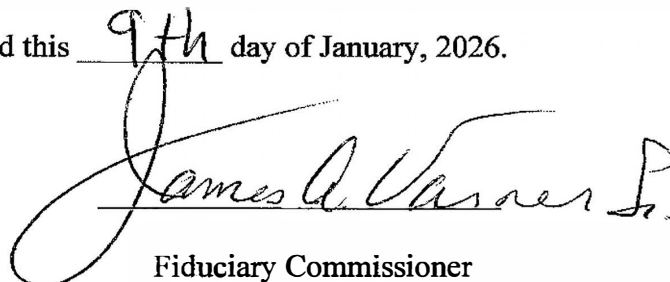 d this 9th day of January, 2026.
James A. Varner Sr.
Fiduciary Commissioner